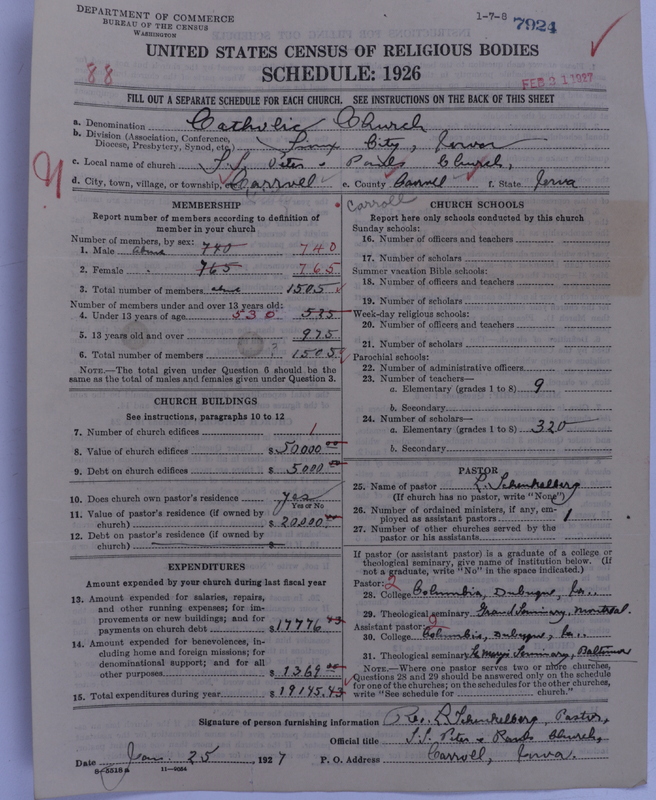 DEPARTMENT OF COMMERCE
BUREAU OF THE CENSUS
WASHINGTON
1-7-8
7924
88
UNITED STATES CENSUS OF RELIGIOUS BODIES
SCHEDULE: 1926
FEB 3 1 1927
FILL OUT A SEPARATE SCHEDULE FOR EACH CHURCH. SEE INSTRUCTIONS ON THE BACK OF THIS SHEET
a. Denomination Catholic Church
b. Division (Association, Conference, Diocese, Presbytery, Synod, etc.) Sioux City, Iowa
c. Local name of church S.S. Peter & Pauls Church,
d. City, town, village, or township, Carroll e. County Carroll f. State Iowa
Carroll
MEMBERSHIP
Report number of members according to definition of
member in your church
Number of members, by sex:
1. Male about 740 740
2. Female " 765 765
3. Total number of members about 1505
Number of members under and over 13 years old:
4. Under 13 years of age 530 525
5. 13 years old and over 975
6. Total number of members 1505
NOTE.—The total given under Question 6 should be the
same as the total of males and females given under Question 3.
CHURCH BUILDINGS
See instructions, paragraphs 10 to 12
7. Number of church edifices 1
8. Value of church edifices $50000.00
9. Debt on church edifices $5000.00
10. Does church own pastor's residence yes
Yes or No
11. Value of pastor's residence (if owned by
church) $20000.00
12. Debt on pastor's residence (if owned by
church) $
EXPENDITURES
Amount expended by your church during last fiscal year
13. Amount expended for salaries, repairs,
and other running expenses; for im-
provements or new buildings; and for
payments on church debt $17776.43
14. Amount expended for benevolences, in-
cluding home and foreign missions; for
denominational support; and for all
other purposes $1369.00
15. Total expenditures during year $19145.43
CHURCH SCHOOLS
Report here only schools conducted by this church
Sunday schools:
16. Number of officers and teachers
17. Number of scholars
Summer vacation Bible schools:
18. Number of officers and teachers
19. Number of scholars
Week-day religious schools:
20. Number of officers and teachers
21. Number of scholars
Parochial schools:
22. Number of administrative officers
23. Number of teachers—
a. Elementary (grades 1 to 8) 9
b. Secondary
24. Number of scholars—
a. Elementary (grades 1 to 8) 320
b. Secondary
PASTOR
25. Name of pastor L. Schenkelberg
(If church has no pastor, write "None")
26. Number of ordained ministers, if any, em-
ployed as assistant pastors 1
27. Number of other churches served by the
pastor or his assistants
If pastor (or assistant pastor) is a graduate of a college or
theological seminary, give name of institution below. (If
not a graduate, write "No" in the space indicated.)
Pastor: 2
28. College Columbia, Dubuque, Ia..
29. Theological seminary Grand Seminary, Montreal.
Assistant pastor: 9
30. College Columbia, Dubuque, Ia..
31. Theological seminary St Marys Seminary, Baltimore
NOTE.—Where one pastor serves two or more churches,
Questions 28 and 29 should be answered only on the schedule
for one of the churches; on the schedules for the other churches,
write "See schedule for church."
Signature of person furnishing information Rev. L Schenkelberg, Pastor,
Official title S.S. Peter & Pauls Church,
Date Jan. 25, 1927 P. O. Address Carroll, Iowa.
8-5518a 11-9054